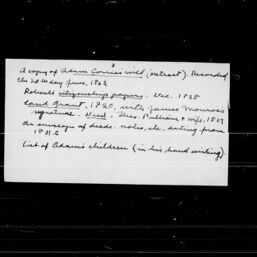 2
A copy of Adam Corrie's will (extract). Recorded
the 20th day June, 1862
Robert's citizenship papers. Dec. 1828
Land Grant, 1820, with James Monroe's
signature. Deed. Thos. Pulliam & wife, 1827
An envelope of deeds, notes, etc. dating from
List of Adam's children (in his hand writing).